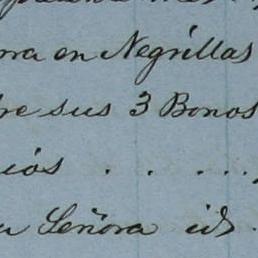 rra en Negrillas
re sus 3 Bonos
cios . . . . .
u Señora id.